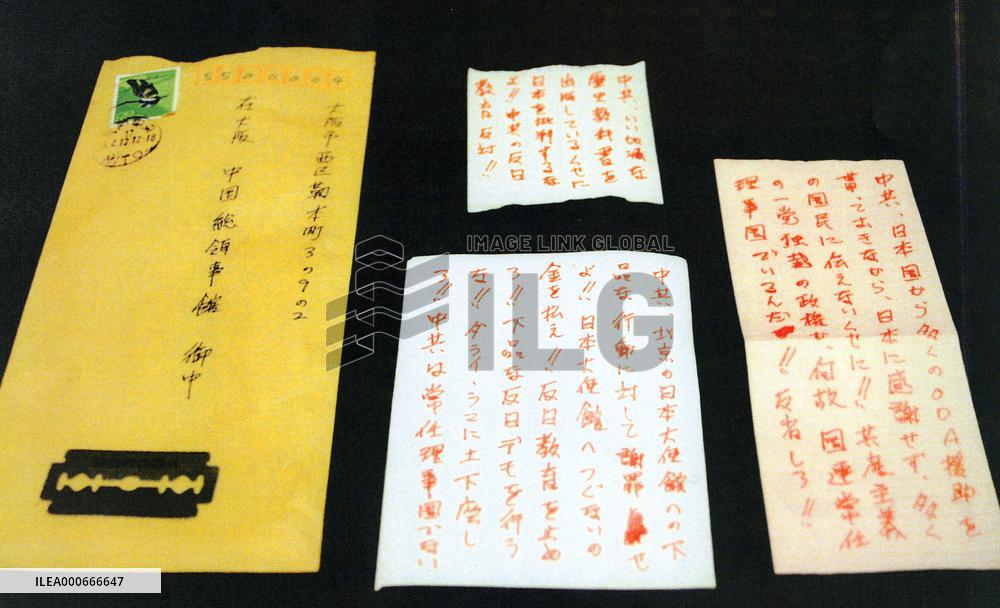 5500004
大阪市西区靱本町3の9の2
在大阪 中国総領事館 御中
中共、いい加減な
歴史教科書を
出版しているくせに
日本を批判するな
よ!! 中共の反日
教育反対!!
中共、北京の日本大使館への下
品な行動に対して謝罪せ
よ!! 日本大使館へつぐないの
金を払え!! 反日教育を止め
ろ!! 下品な反日デモを行う
な!! ダライ・ラマに土下座し
ろ!! 中共は常任理事国でない
中共、日本国から多くのODA援助を
貰っておきながら、日本に感謝せず、多く
の国民に伝えないくせに!! 共産主義
の一党独裁の政権が、何故国連常任
理事国でいるんだ!! 反省しろ!!
IMAGE LINK GLOBAL
ILG
ILEA000666647